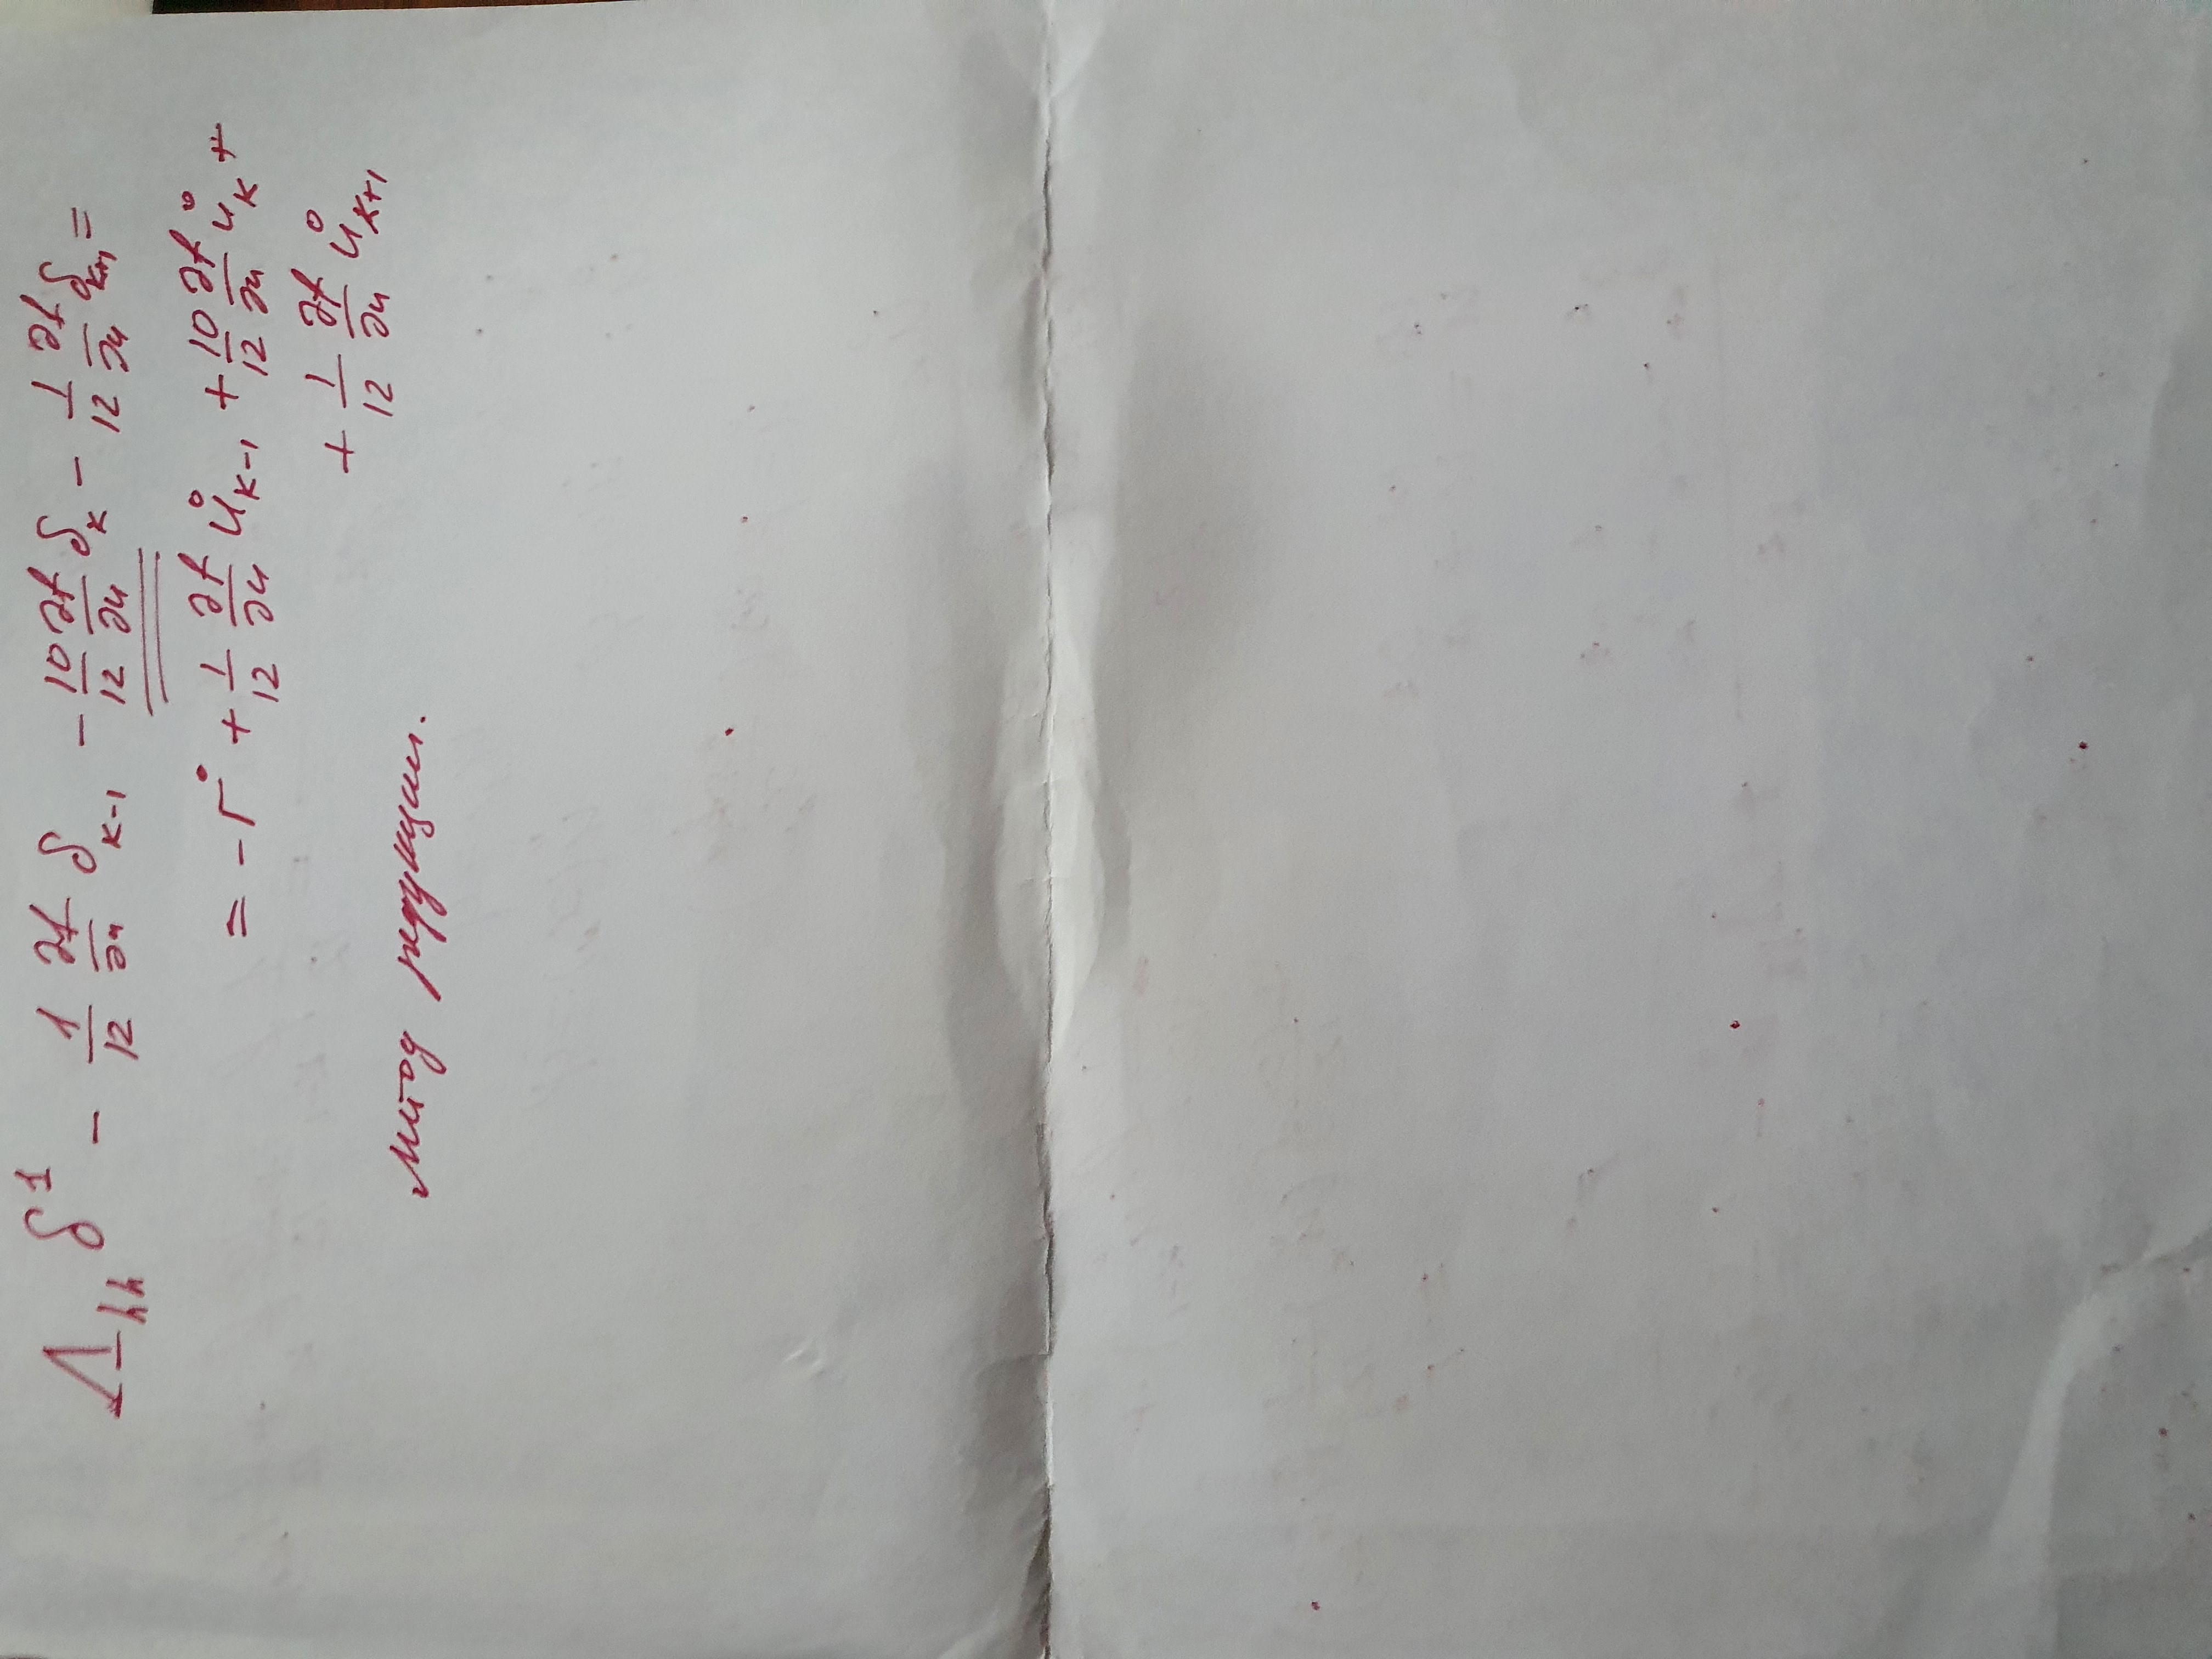 Λ_hh δ^1 − 1/12 ∂f/∂u δ_{k−1} − 10/12 ∂f/∂u δ_k − 1/12 ∂f/∂u δ_{k+1} =
= −r° + 1/12 ∂f/∂u u°_{k−1} + 10/12 ∂f/∂u u°_k +
+ 1/12 ∂f/∂u u°_{k+1}
Метод редукции.